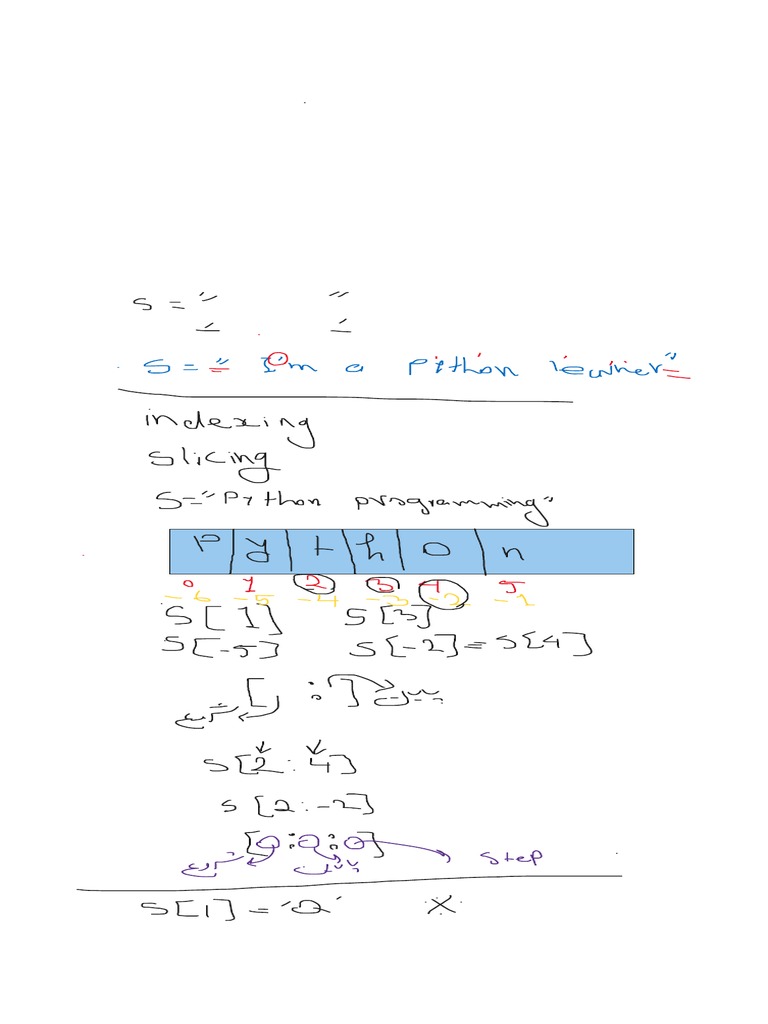 S = " "
S = " I'm a Python learner"
indexing
slicing
S="Python programming"
P y t h o n
0 1 2 3 4 5
-6 -5 -4 -3 -2 -1
S[1] S[3]
S[-5] S[-2]=S[4]
[ : ] پایان
شروع
S[2:4]
S[2:-2]
[ : : ] step
شروع پایان
S[1]='a' X